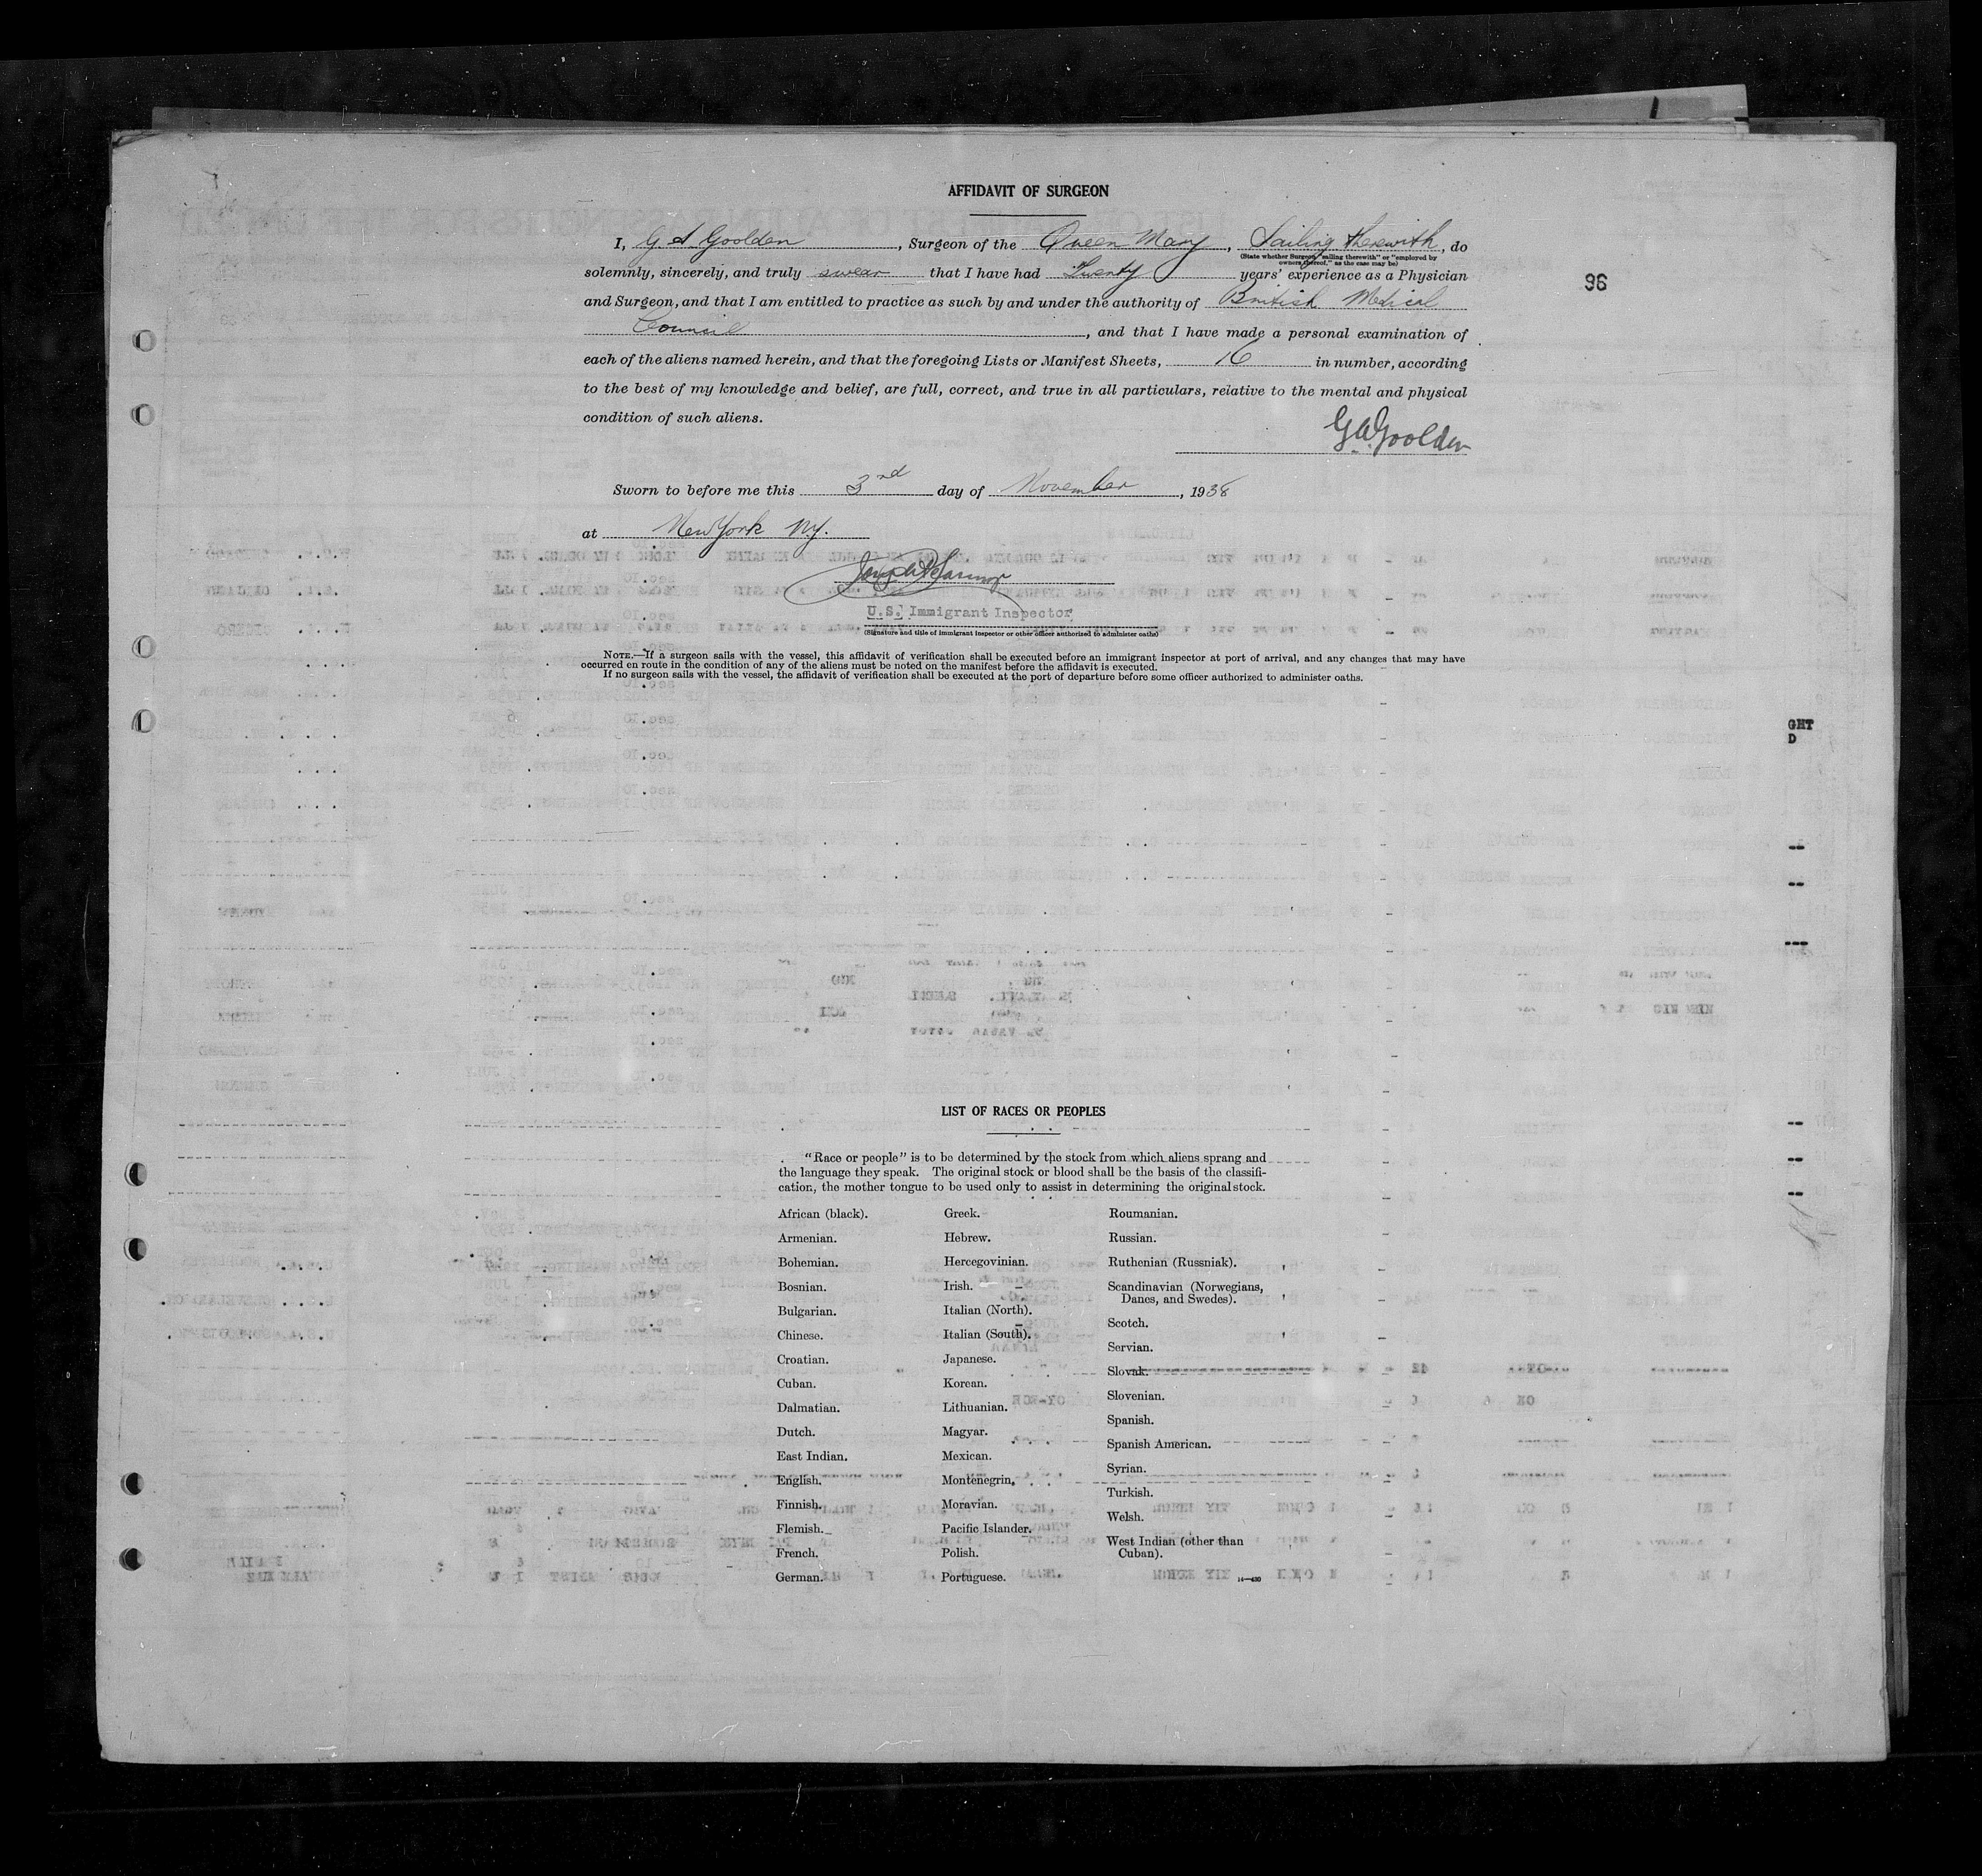 AFFIDAVIT OF SURGEON
I, G A Goolden, Surgeon of the Queen Mary, Sailing therewith, do
(State whether Surgeon "sailing therewith" or "employed by
owners thereof," as the case may be)
solemnly, sincerely, and truly swear that I have had Twenty years' experience as a Physician
96
and Surgeon, and that I am entitled to practice as such by and under the authority of British Medical
Council, and that I have made a personal examination of
each of the aliens named herein, and that the foregoing Lists or Manifest Sheets, 16 in number, according
to the best of my knowledge and belief, are full, correct, and true in all particulars, relative to the mental and physical
condition of such aliens.
G A Goolden
Sworn to before me this 3rd day of November, 1938
at New York N.Y.
U.S. Immigrant Inspector
(Signature and title of immigrant inspector or other officer authorized to administer oaths)
NOTE.—If a surgeon sails with the vessel, this affidavit of verification shall be executed before an immigrant inspector at port of arrival, and any changes that may have
occurred en route in the condition of any of the aliens must be noted on the manifest before the affidavit is executed.
If no surgeon sails with the vessel, the affidavit of verification shall be executed at the port of departure before some officer authorized to administer oaths.
GHT
D
LIST OF RACES OR PEOPLES
"Race or people" is to be determined by the stock from which aliens sprang and
the language they speak. The original stock or blood shall be the basis of the classifi-
cation, the mother tongue to be used only to assist in determining the original stock.
African (black).
Armenian.
Bohemian.
Bosnian.
Bulgarian.
Chinese.
Croatian.
Cuban.
Dalmatian.
Dutch.
East Indian.
English.
Finnish.
Flemish.
French.
German.
Greek.
Hebrew.
Hercegovinian.
Irish.
Italian (North).
Italian (South).
Japanese.
Korean.
Lithuanian.
Magyar.
Mexican.
Montenegrin.
Moravian.
Pacific Islander.
Polish.
Portuguese.
Roumanian.
Russian.
Ruthenian (Russniak).
Scandinavian (Norwegians,
Danes, and Swedes).
Scotch.
Servian.
Slovak.
Slovenian.
Spanish.
Spanish American.
Syrian.
Turkish.
Welsh.
West Indian (other than
Cuban).